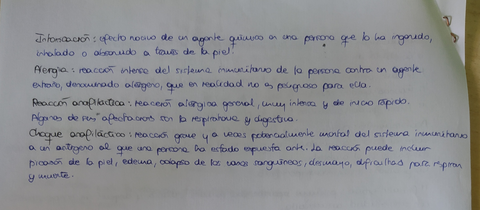 Intoxicación: efecto nocivo de un agente químico en una persona que lo ha ingerido,
inhalado o absorvido a través de la piel.
Alergia: reacción intensa del sistema inmunitario de la persona contra un agente
extraño, denominado alérgeno, que en realidad no es peligroso para ella.
Reacción anafiláctica: reacción alérgica general, muy intensa y de inicio rápido.
Algunos de sus afectación con la respiratoria y digestiva.
Choque anafiláctico: reacción grave y a veces potencialmente mortal del sistema inmunitario
a un antígeno al que una persona ha estado expuesta ante. La reacción puede incluir
picazón de la piel, edema, colapso de los vasos sanguíneos, desmayo, dificultad para respirar
y muerte.